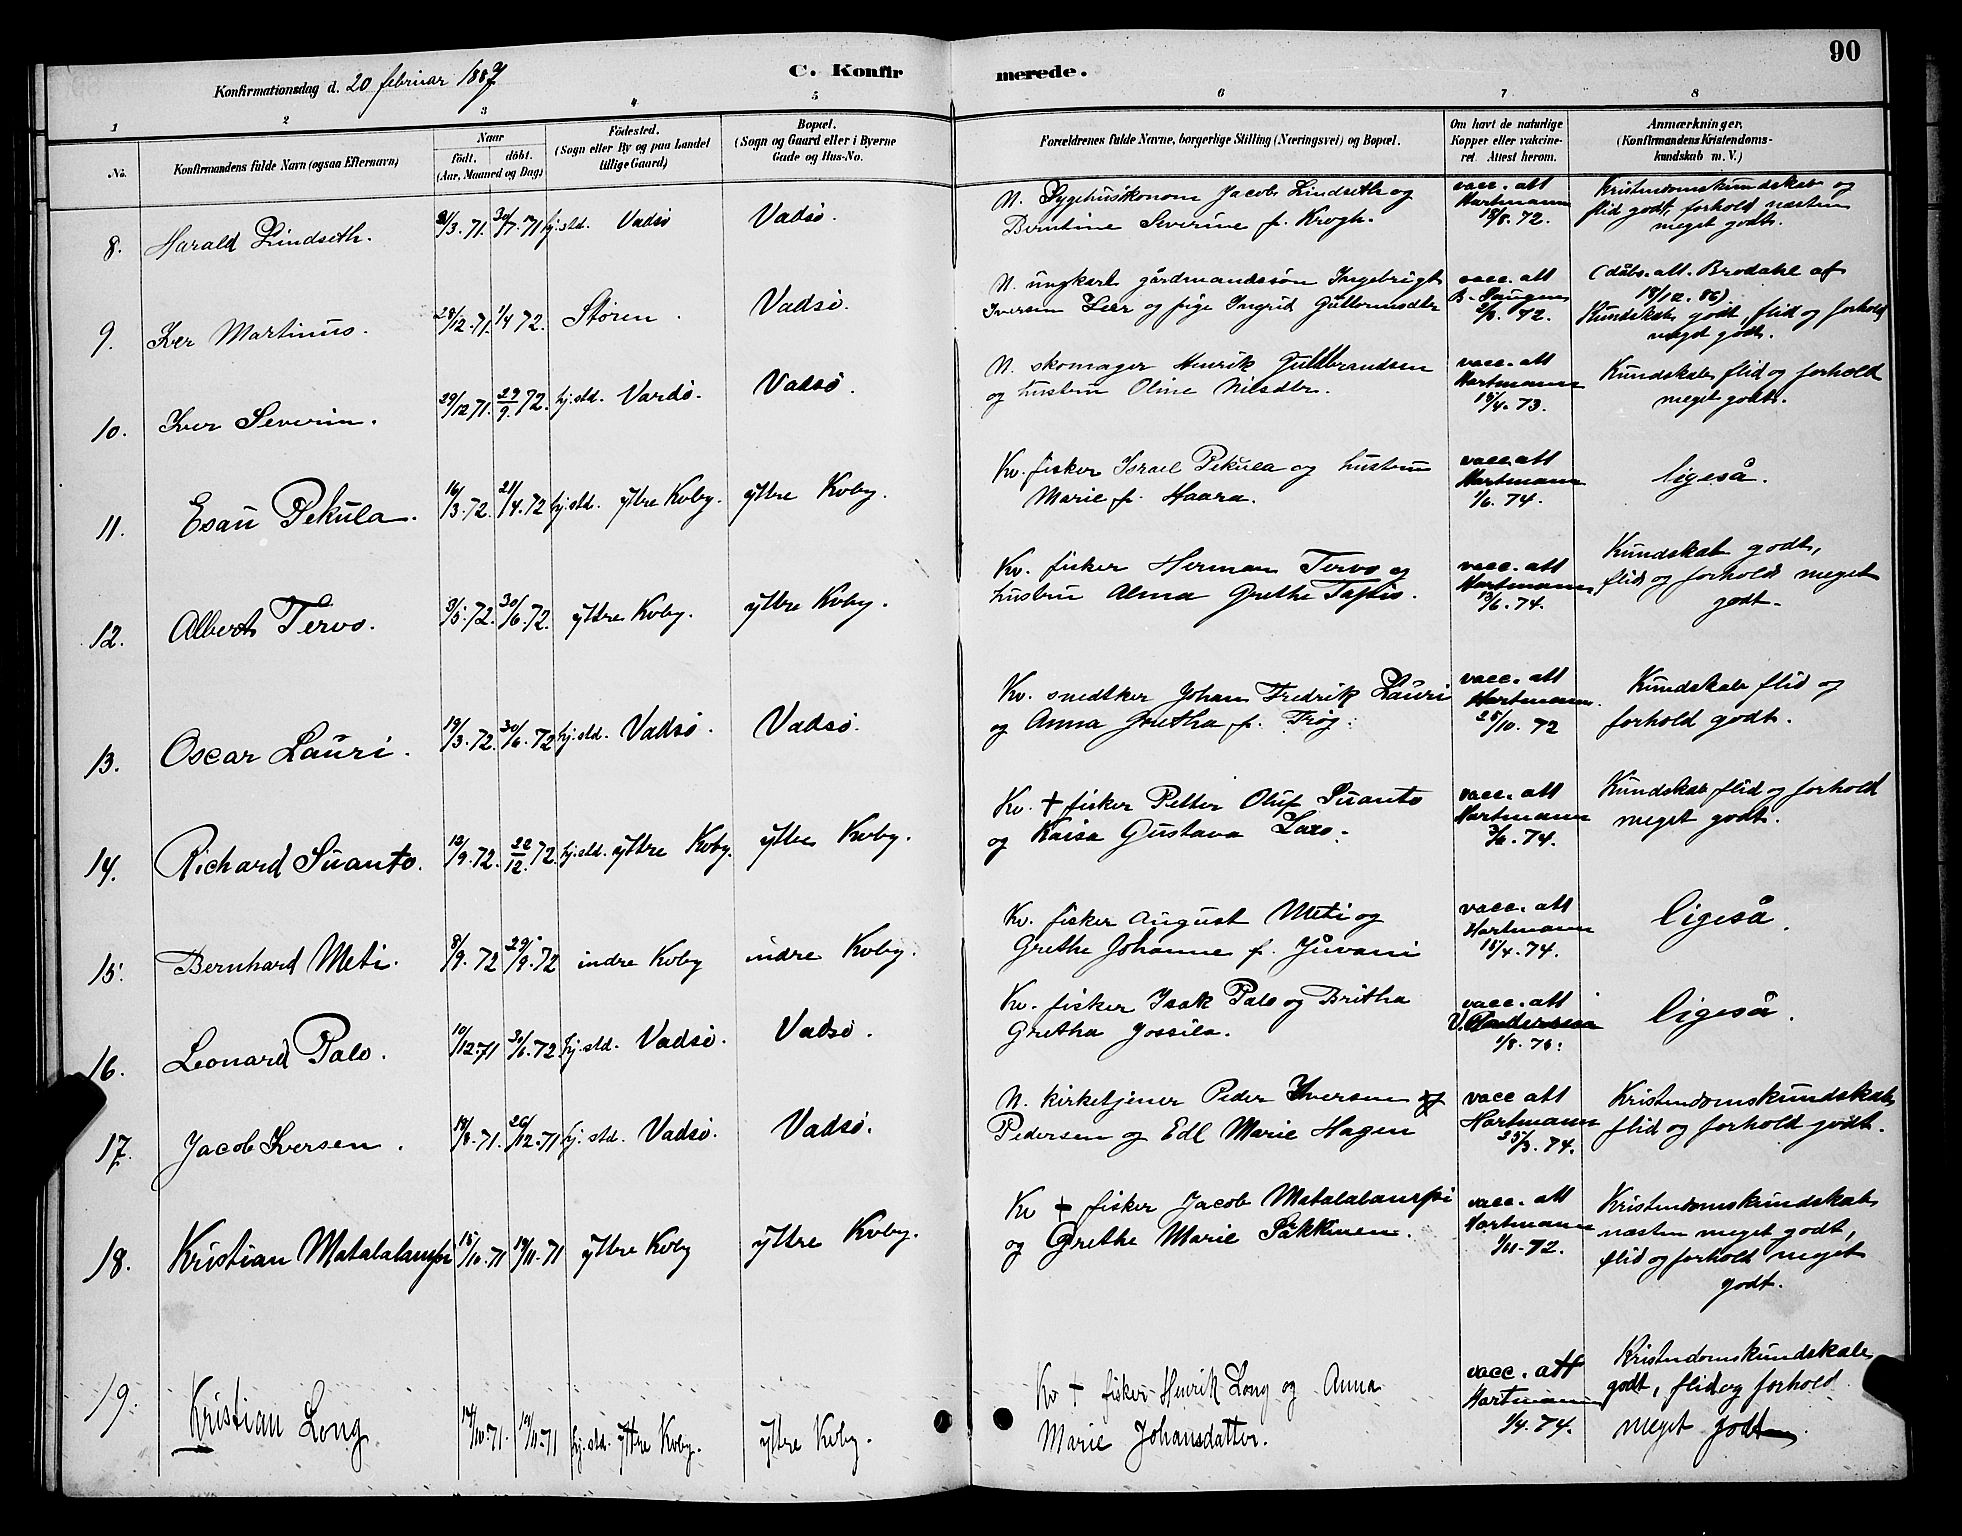 90
Konfirmationsdag d. 20 februar 1887
C. Konfirmerede.
1 2 3 4 5 6 7 8
No. Konfirmandens fulde Navn (ogsaa Efternavn) Naar født. døbt. (Aar, Maaned og Dag) Fødested. (Sogn eller By og paa Landet tillige Gaard) Bopæl. (Sogn og Gaard eller i Byerne Gade og Hus-No. Forældrenes fulde Navne, borgerlige Stilling (Næringsvei) og Bopæl. Om havt de naturlige Kopper eller vakcineret. Attest herom. Anmærkninger. (Konfirmandens Kristendomskundskab m. V.)
8. Harald Lindseth. 21/3.71. 30/7.71 hj.std. Vadsø Vadsø. N. Sygehusøkonom Jacob Lindseth og vacc. att Kristendomskundskab og
Berntine Severine f. Krogh. Hartmann 18/8.72. flid godt, forhold næsten
meget godt.
9. Iver Martinus. 28/12.71. 1/4 72. Støren. Vadsø. N. ungkarl gårdmandssøn Ingebrigt vacc. att (dåbs.att. Brodahl af
Iversen Leer og pige Ingrid Guttormsdtr 72. 18/12.86)
Kundskab godt, flid og forhold
meget godt.
10. Iver Severin. 29/12 71. 29/9.72. hj.std. Vardø. Vadsø. N. skomager Henrik Guldbrandsen vacc. att Kundskab flid og forhold
og hustru Oline Nilsdtr. Hartmann 18/4.73. meget godt.
11. Esau Pekula. 16/3.72. 21/4.72 hj.std. yttre Kvby. yttre Kvby. Kv. fisker Israel Pekula og hustru vacc att ligeså.
Marie f. Haara. Hartmann 1/6.74.
12. Albert Tervo. 3/5.72. 30/6.72. yttre Kvby. yttre Kvby. Kv. fisker Herman Tervo og vacc. att Kundskab godt,
hustru Alma Grethe Hartmann 74. flid og forhold meget
godt.
13. Oscar Lauri. 19/3.72. 30/6.72 hj.std. Vadsø. Vadsø. Kv. snedker Johan Fredrik Lauri vacc. att Kundskab flid og
og Anna Gretha f. Frøg. Hartmann. 28/10.72 forhold godt.
14. Richard Suanto. 12/9.72. 22/12.72 hj.std. yttre Kvby. yttre Kvby. Kv. + fisker Petter Oluf Suanto vacc. att Kundskab flid og forhold
og Kaisa Gustava Laxo. Hartmann 3/6.74. meget godt.
15. Bernhard Meti. 8/9.72 29/9.72 indre Kvby indre Kvby. Kv. fisker August Meti og vacc. att ligeså.
Grethe Johanne f. Juvani Hartmann 18/4.74.
16. Leonard Palo. 10/12.71 hj.std. Vadsø. Vadsø. Kv. fisker Isak Palo og Britha vacc. att ligeså.
Gretha Jossila.
17. Jacob Iversen. 71. 26/12.71 hj.std. Vadsø. Vadsø. N. kirketjener Peder Iversen vacc att Kristendomskundskab
Pedersen og Edl Marie Hagen Hartmann 25/3.74. flid og forhold godt.
18. Kristian Matalalampi 15/10.71 19/11.71 yttre Kvby yttre Kvby. Kv + fisker Jacob Matalalampi vacc. att Kristendomskundskab
og Grethe Marie Sakkinen. Hartmann 1/11.72. næsten meget godt,
flid og forhold meget
godt.
19. Kristian Long 14/10.71. 19/11.71 hj.std. yttre Kvby. yttre Kvby. Kv + fisker Henrik Long og Anna vacc. att Kristendomskundskab
Marie Johansdatter. Hartmann 1/4.74. godt, flid og forhold
meget godt.